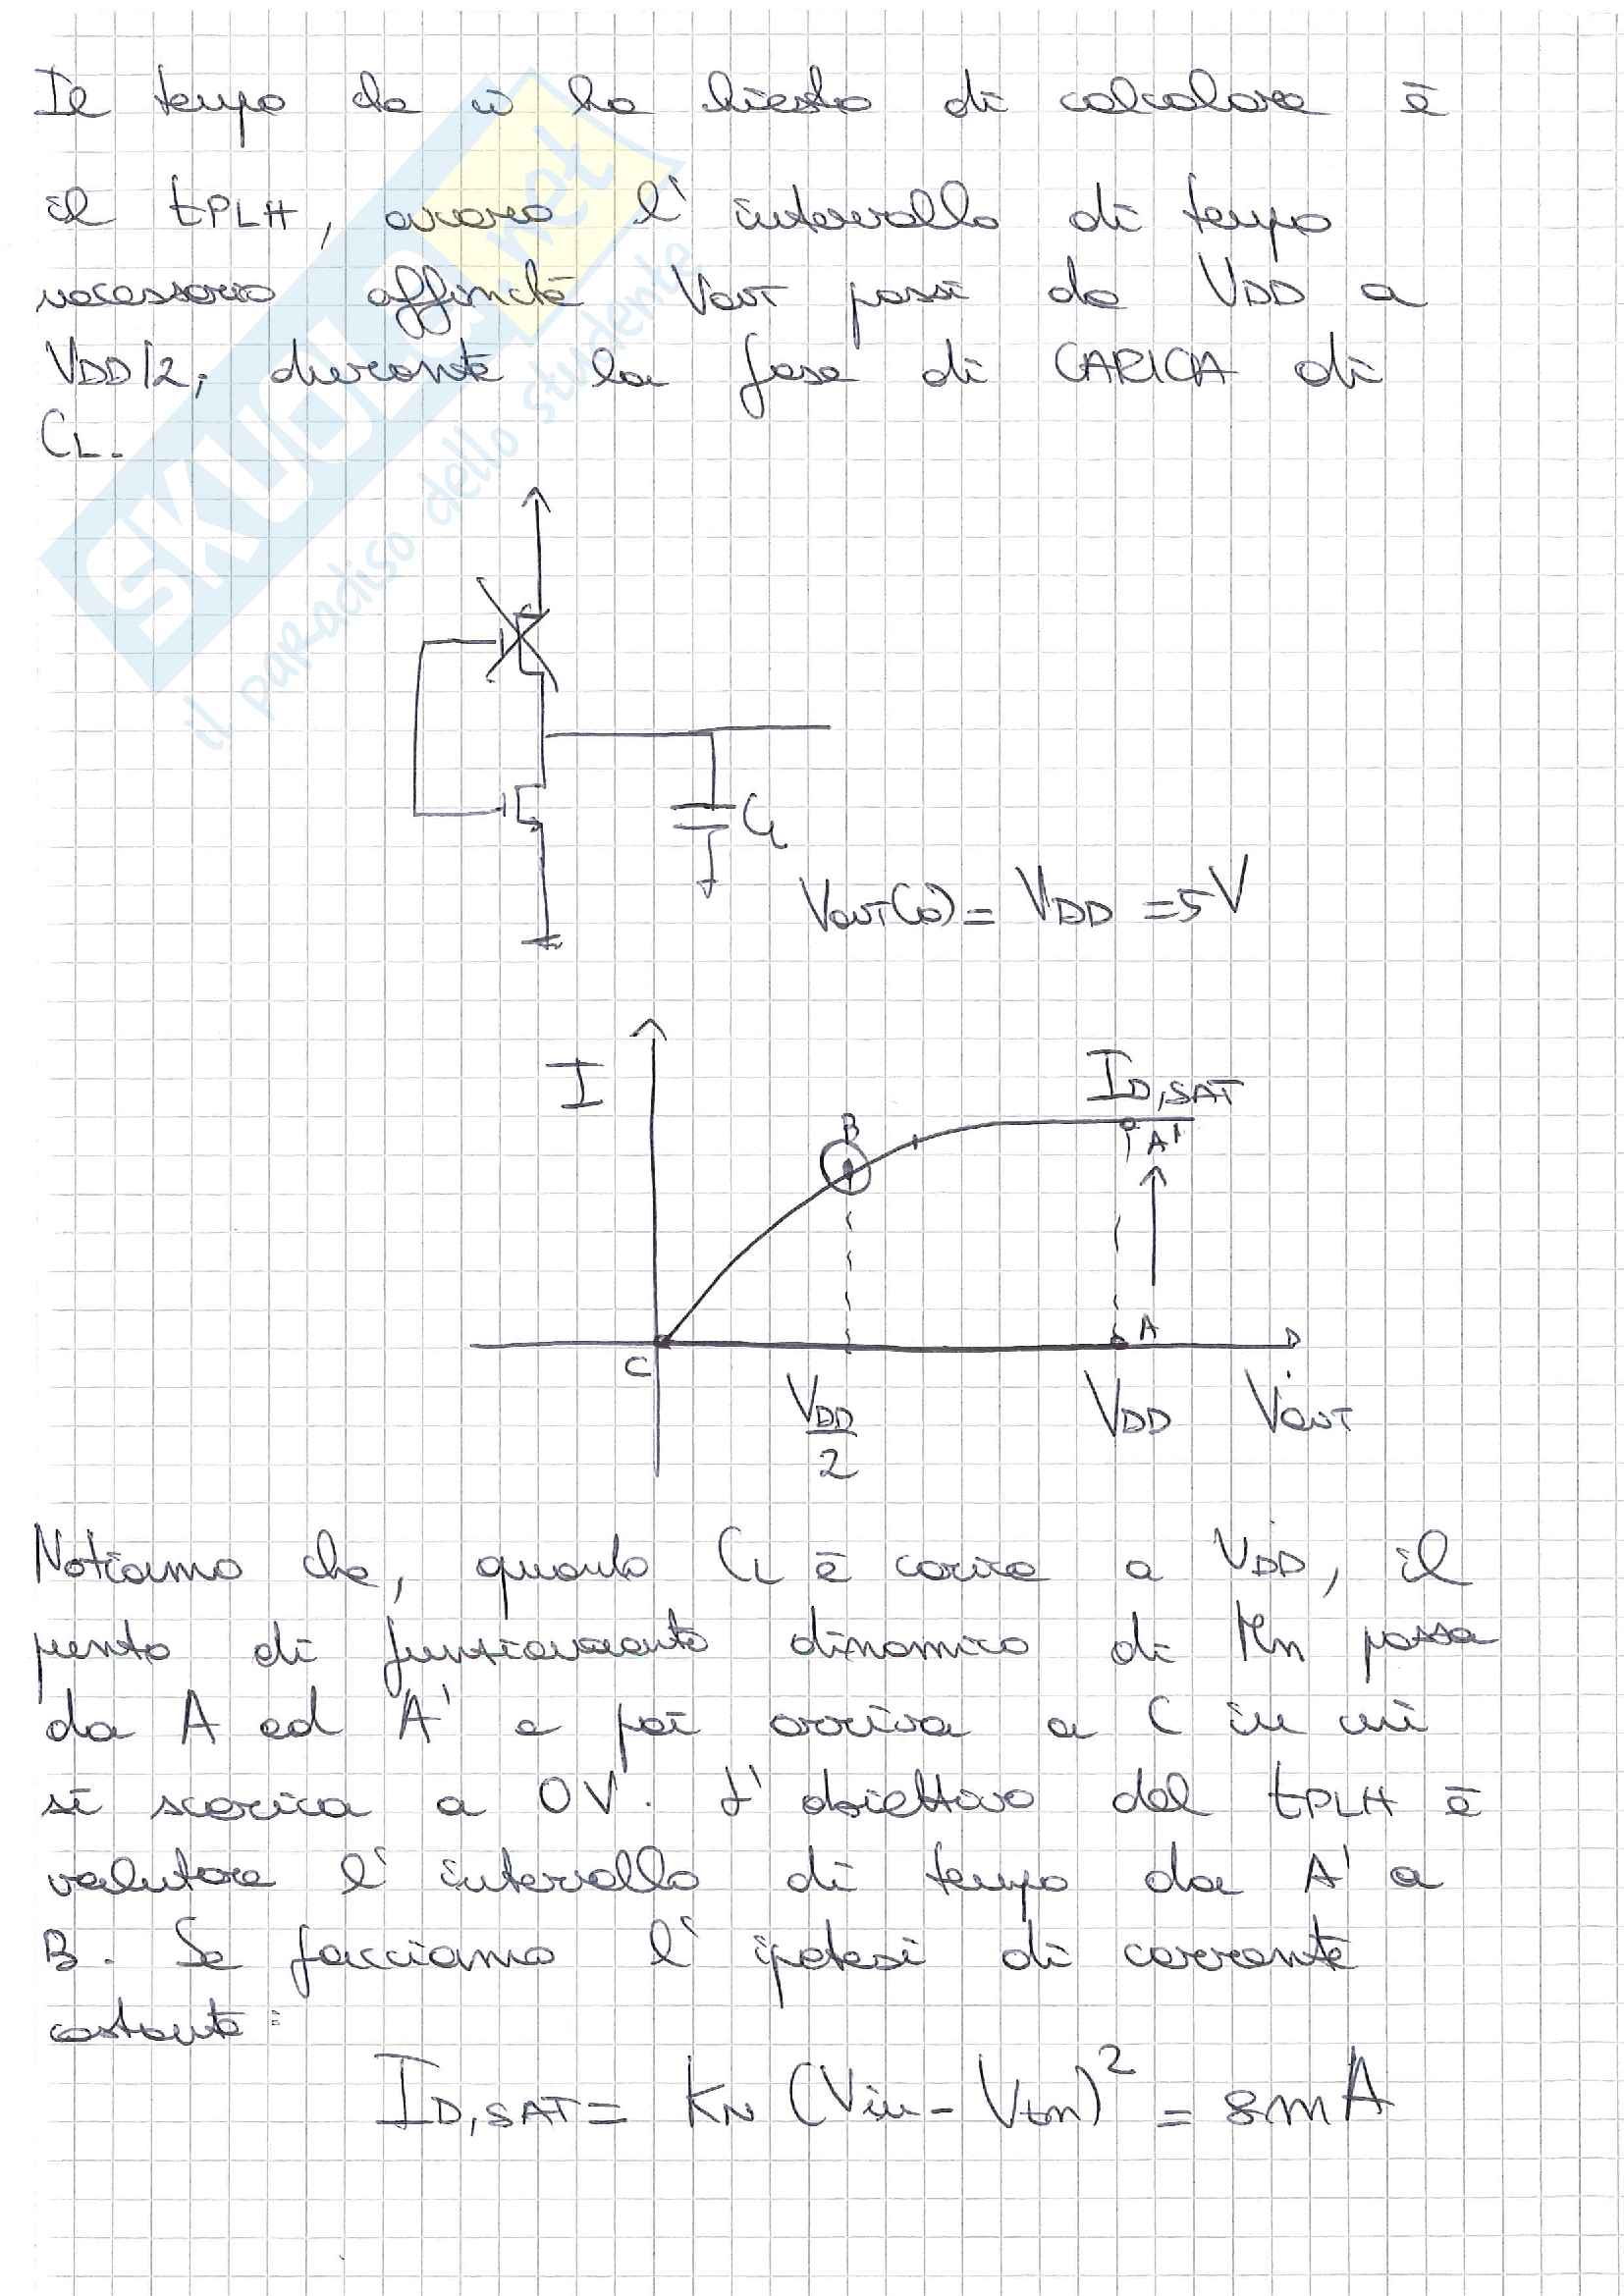 Il tempo che ci ha chiesto di calcolare è
il tPLH, ovvero l' intervallo di tempo
necessario affinché VOUT passi da VDD a
VDD/2, durante la fase di CARICA di
CL.
SKUOLA.net
il paradiso dello studente
CL
VOUT(0) = VDD = 5V
I
ID,SAT
B
A'
A
C
VDD/2
VDD
VOUT
Notiamo che, quando CL è carica a VDD, il
punto di funzionamento dinamico di Mn passa
da A ad A' e poi arriva a C in cui
si scarica a 0V. L' obiettivo del tPLH è
valutare l' intervallo di tempo da A' a
B. Se facciamo l' ipotesi di corrente
costante:
ID,SAT = KN (Vin - Vtn)² = 8mA